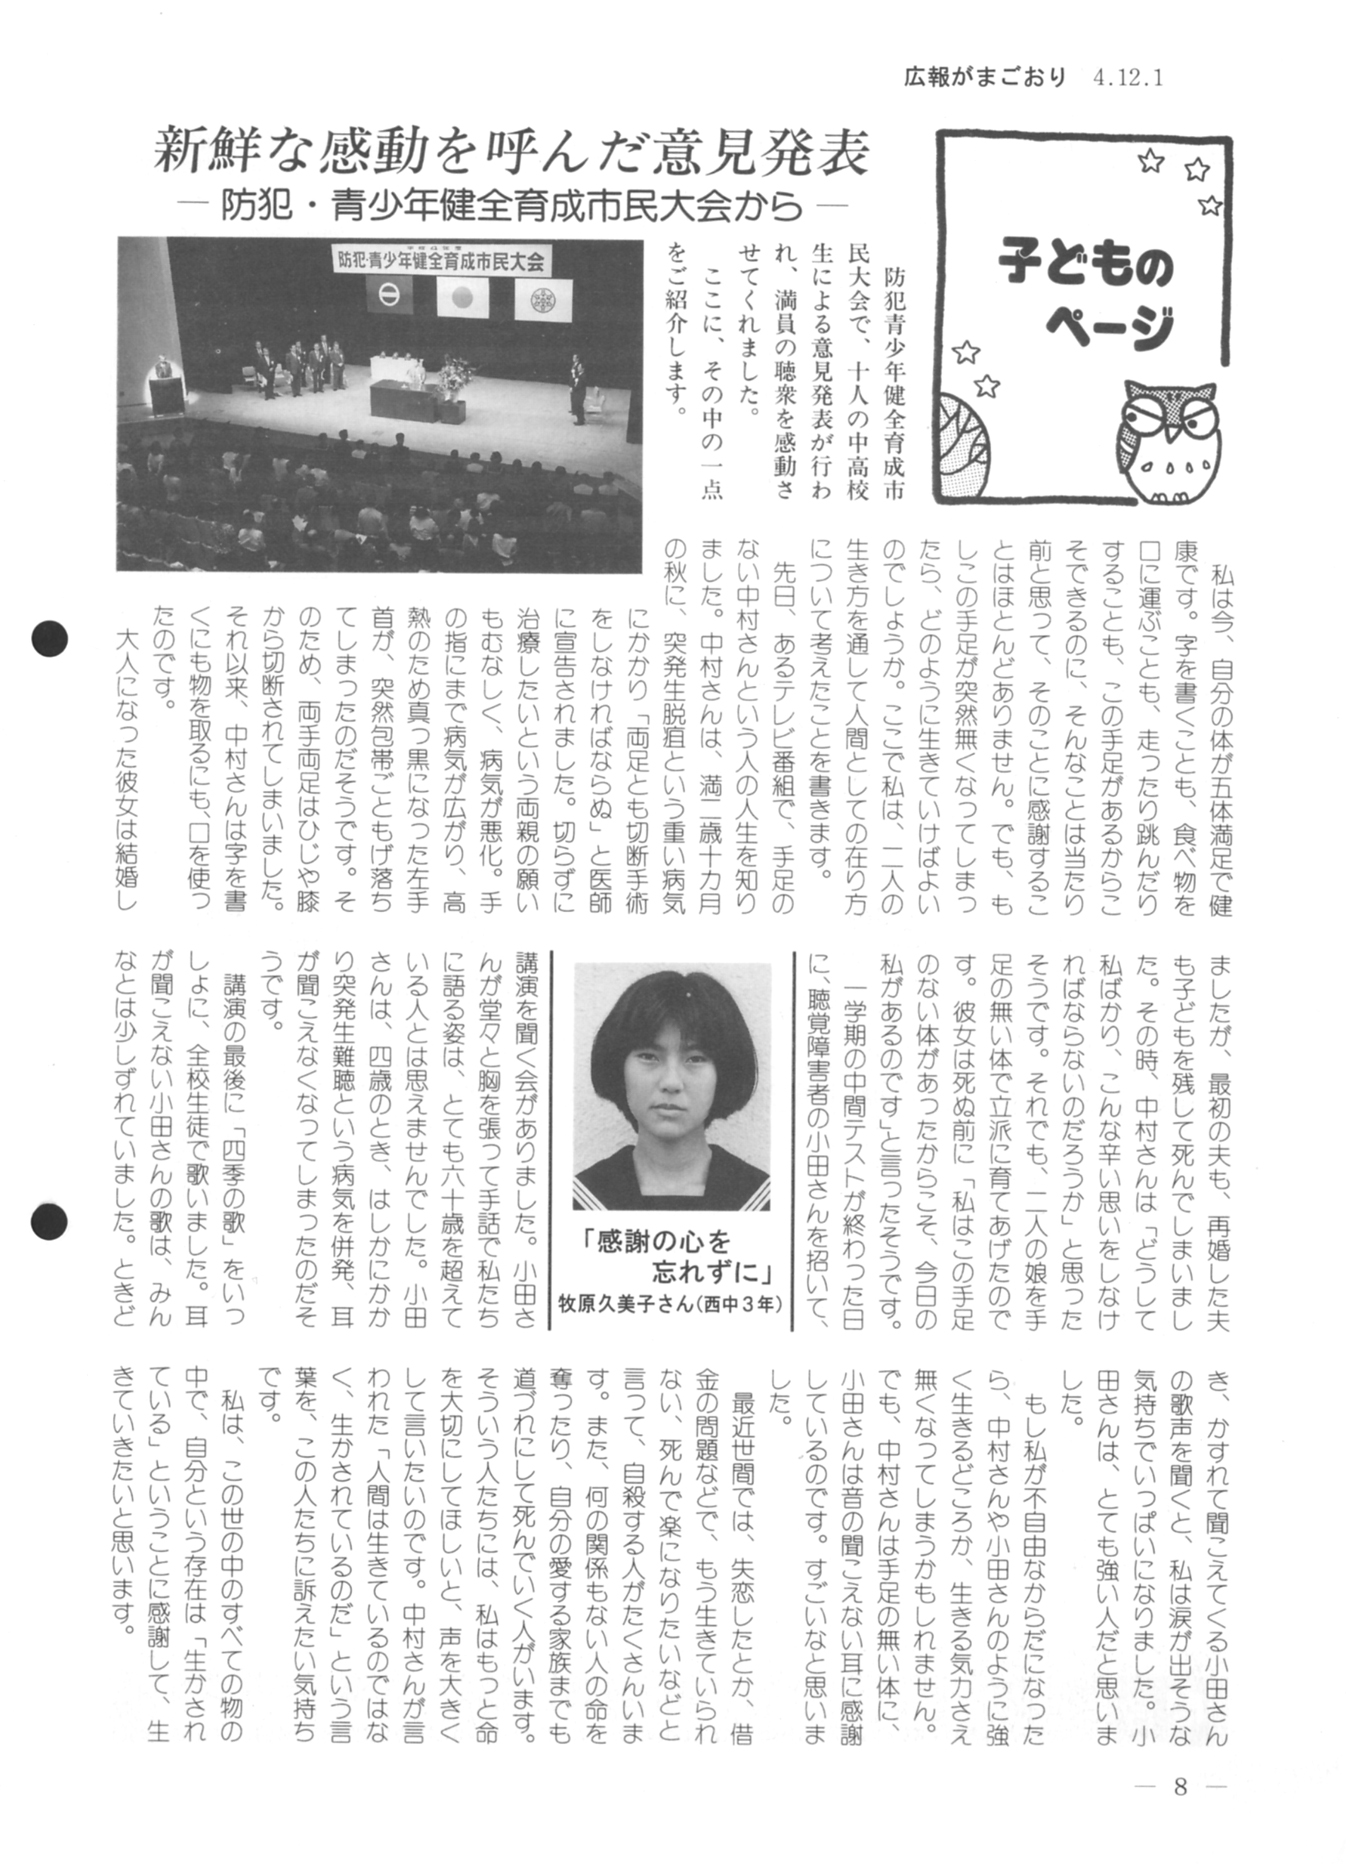 広報がまごおり 4.12.1
新鮮な感動を呼んだ意見発表
― 防犯・青少年健全育成市民大会から ―
子どもの
ページ
防犯・青少年健全育成市民大会
防犯青少年健全育成市
民大会で、十人の中高校
生による意見発表が行わ
れ、満員の聴衆を感動さ
せてくれました。
ここに、その中の一点
をご紹介します。
私は今、自分の体が五体満足で健
康です。字を書くことも、食べ物を
口に運ぶことも、走ったり跳んだり
することも、この手足があるからこ
そできるのに、そんなことは当たり
前と思って、そのことに感謝するこ
とはほとんどありません。でも、も
しこの手足が突然無くなってしまっ
たら、どのように生きていけばよい
のでしょうか。ここで私は、二人の
生き方を通して人間としての在り方
について考えたことを書きます。
先日、あるテレビ番組で、手足の
ない中村さんという人の人生を知り
ました。中村さんは、満二歳十カ月
の秋に、突発生脱疽という重い病気
にかかり「両足とも切断手術
をしなければならぬ」と医師
に宣告されました。切らずに
治療したいという両親の願い
もむなしく、病気が悪化。手
の指にまで病気が広がり、高
熱のため真っ黒になった左手
首が、突然包帯ごともげ落ち
てしまったのだそうです。そ
のため、両手両足はひじや膝
から切断されてしまいました。
それ以来、中村さんは字を書
くにも物を取るにも、口を使っ
たのです。
大人になった彼女は結婚し
ましたが、最初の夫も、再婚した夫
も子どもを残して死んでしまいまし
た。その時、中村さんは「どうして
私ばかり、こんな辛い思いをしなけ
ればならないのだろうか」と思った
そうです。それでも、二人の娘を手
足の無い体で立派に育てあげたので
す。彼女は死ぬ前に「私はこの手足
のない体があったからこそ、今日の
私があるのです」と言ったそうです。
一学期の中間テストが終わった日
に、聴覚障害者の小田さんを招いて、
「感謝の心を
忘れずに」
牧原久美子さん(西中3年)
講演を聞く会がありました。小田さ
んが堂々と胸を張って手話で私たち
に語る姿は、とても六十歳を超えて
いる人とは思えませんでした。小田
さんは、四歳のとき、はしかにかか
り突発生難聴という病気を併発、耳
が聞こえなくなってしまったのだそ
うです。
講演の最後に「四季の歌」をいっ
しょに、全校生徒で歌いました。耳
が聞こえない小田さんの歌は、みん
なとは少しずれていました。ときど
き、かすれて聞こえてくる小田さん
の歌声を聞くと、私は涙が出そうな
気持ちでいっぱいになりました。小
田さんは、とても強い人だと思いま
した。
もし私が不自由なからだになった
ら、中村さんや小田さんのように強
く生きるどころか、生きる気力さえ
無くなってしまうかもしれません。
でも、中村さんは手足の無い体に、
小田さんは音の聞こえない耳に感謝
しているのです。すごいなと思いま
した。
最近世間では、失恋したとか、借
金の問題などで、もう生きていられ
ない、死んで楽になりたいなどと
言って、自殺する人がたくさんいま
す。また、何の関係もない人の命を
奪ったり、自分の愛する家族までも
道づれにして死んでいく人がいます。
そういう人たちには、私はもっと命
を大切にしてほしいと、声を大きく
して言いたいのです。中村さんが言
われた「人間は生きているのではな
く、生かされているのだ」という言
葉を、この人たちに訴えたい気持ち
です。
私は、この世の中のすべての物の
中で、自分という存在は「生かされ
ている」ということに感謝して、生
きていきたいと思います。
― 8 ―